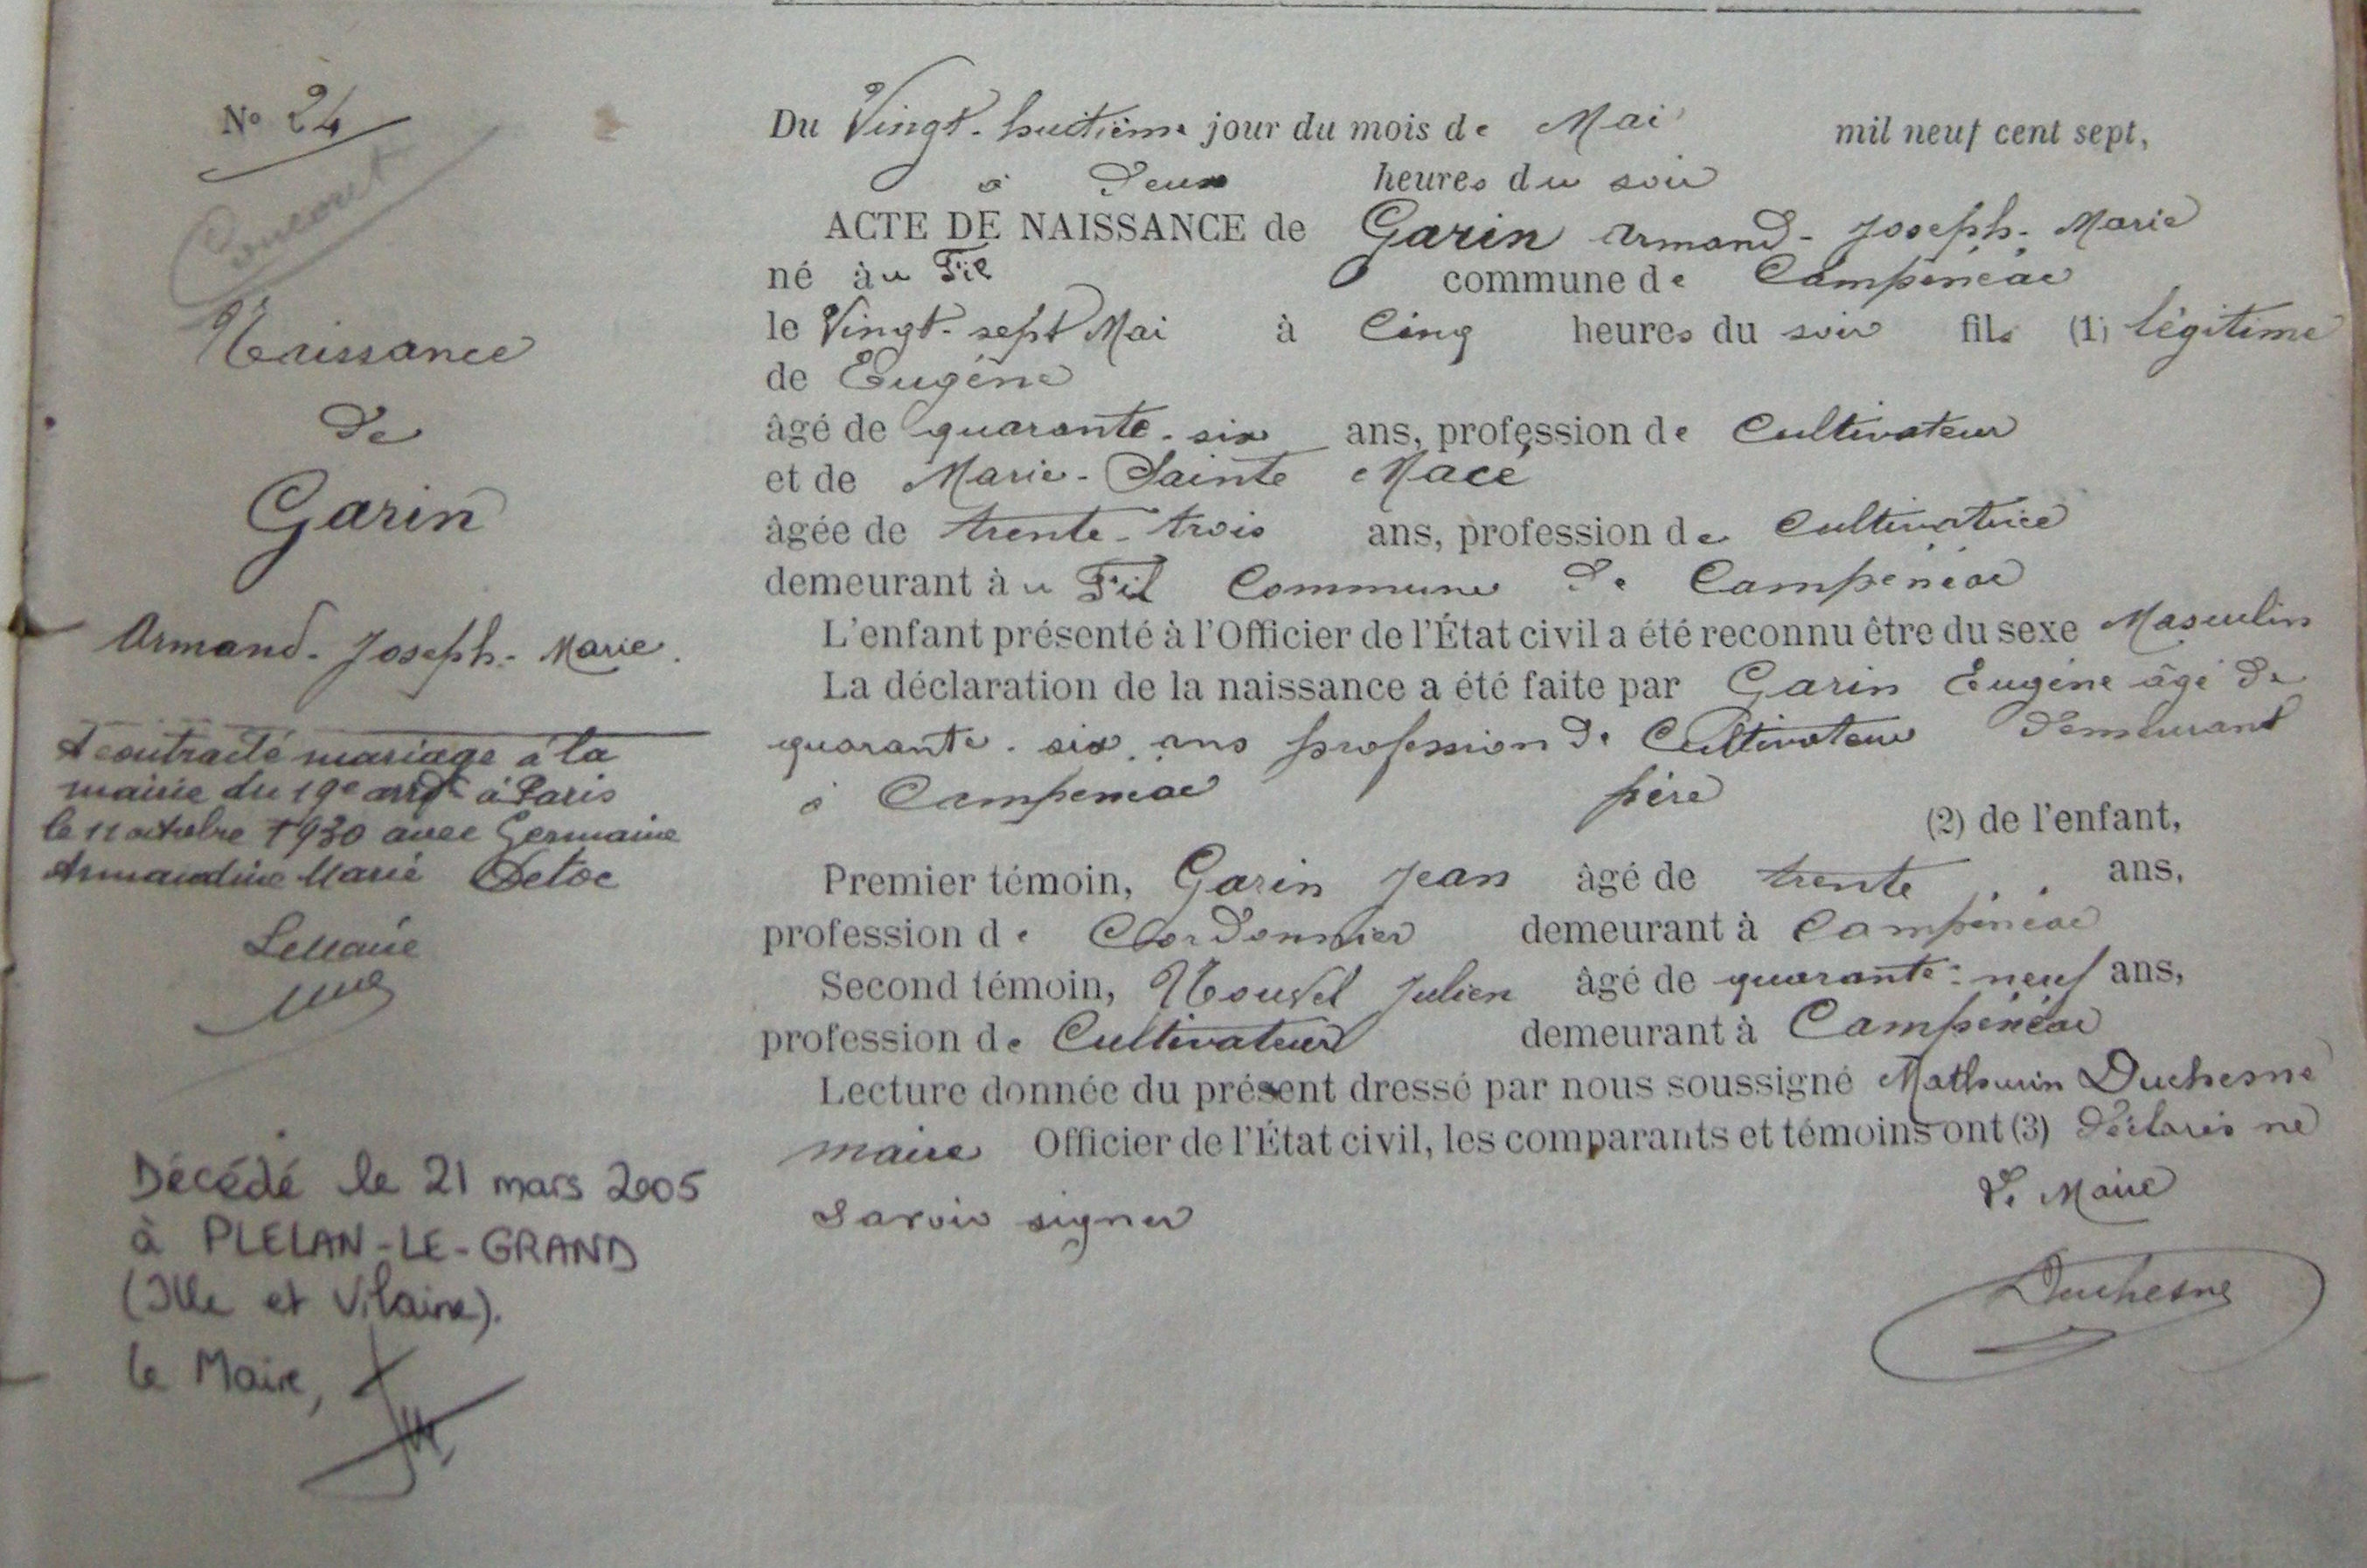 N° 24
Naissance
de
Garin
Armand-Joseph-Marie.
A contracté mariage à la
mairie du 19e arrdt à Paris
le 11 octobre 1930 avec Germaine
Armandine Marie Detoc
Le Maire
Décédé le 21 mars 2005
à PLELAN-LE-GRAND
(Ille et Vilaine).
le Maire,
Du Vingt-huitième jour du mois de Mai mil neuf cent sept,
à deux heures du soir
ACTE DE NAISSANCE de Garin Armand-Joseph-Marie
né àu Fil commune de Campénéac
le Vingt-sept Mai à Cinq heures du soir fils (1) légitime
de Eugène
âgé de quarante-six ans, profession de Cultivateur
et de Marie-Sainte Macé
âgée de trente-trois ans, profession de Cultivatrice
demeurant àu Fil Commune de Campénéac
L'enfant présenté à l'Officier de l'État civil a été reconnu être du sexe Masculin
La déclaration de la naissance a été faite par Garin Eugène âgé de
quarante-six ans profession de Cultivateur demeurant
à Campénéac père (2) de l'enfant,
Premier témoin, Garin Jean âgé de trente ans,
profession de Cordonnier demeurant à Campénéac
Second témoin, Nouvel Julien âgé de quarante-neuf ans,
profession de Cultivateur demeurant à Campénéac
Lecture donnée du présent dressé par nous soussigné Mathurin Duchesne
maire Officier de l'État civil, les comparants et témoins ont (3) déclarés ne
savoir signer
Le Maire
Duchesne